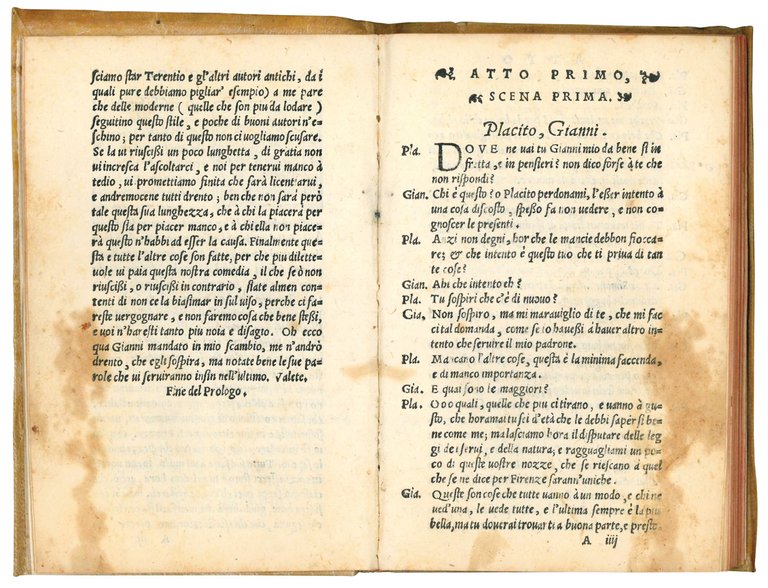 sciamo star Terentio e gl'altri autori antichi, da i
quali pure debbiamo pigliar' esempio) a me pare
che delle moderne (quelle che son piu da lodare)
seguitino questo stile, e poche di buoni autori n'e-
schino; per tanto di questo non ci vogliamo scusare.
Se la vi riuscissi un poco lunghetta, di gratia non
vi incresca l'ascoltarci, e noi per tenerui manco à
tedio, vi promettiamo finita che sarà licentiarui,
e andremocene tutti drento; ben che non sarà però
tale questa sua lunghezza, che à chi la piacerà per
questo sia per piacer manco, e à chi ella non piace-
rà questo n'habbi ad esser la causa. Finalmente que-
sta e tutte l'altre cose son fatte, per che piu dilette-
uole vi paia questa nostra comedia, il che se ò non
riuscissi, o riuscissi in contrario, state almen con-
tenti di non ce la biasimar in sul viso, perche ci fa-
reste vergognare, e non faremo cosa che bene stessi,
e voi n'haresti tanto piu noia e disagio. Oh ecco
qua Gianni mandato in mio scambio, me n'andrò
drento, che egli sospira, ma notate bene le sue pa-
role che vi seruiranno insin nell'ultimo. Valete.
Fine del Prologo.
ATTO PRIMO,
SCENA PRIMA.
Placito, Gianni.
Pla. DOVE ne vai tu Gianni mio da bene sì in
fretta, e in pensieri? non dico forse à te che
non rispondi?
Gian. Chi è questo? o Placito perdonami, l'esser intento à
una cosa discosto, spesso fa non vedere, e non co-
gnoscer le presenti.
Pla. Anzi non degni, hor che le mancie debbon fiocca-
re; & che intento è questo tuo che ti priua di tan
te cose?
Gian. Ahi che intento eh?
Pla. Tu sospiri che c'è di nuouo?
Gia. Non sospiro, ma mi marauiglio di te, che mi fac
ci tal domanda, come se io hauessi à hauer altro in-
tento che seruire il mio padrone.
Pla. Mancano l'altre cose, questa è la minima faccenda,
e di manco importanza.
Gia. E qua sono le maggiori?
Pla. O o o quali, quelle che piu ci tirano, e vanno à gu-
sto, che horamai tu sei d'età che le debbi saper sì be-
ne come me; ma lasciamo hora il disputare delle leg
gi de serui, e della natura; e ragguagliami un po-
co di queste vostre nozze, che se riescano a quel
che se ne dice per Firenze sarann'uniche.
Gia. Queste son cose che tutte vanno à un modo, e chi ne
ved'una, le vede tutte, e l'ultima sempre è la piu
bella, ma tu douerai trouarti a buona parte, e presto.
A iiij